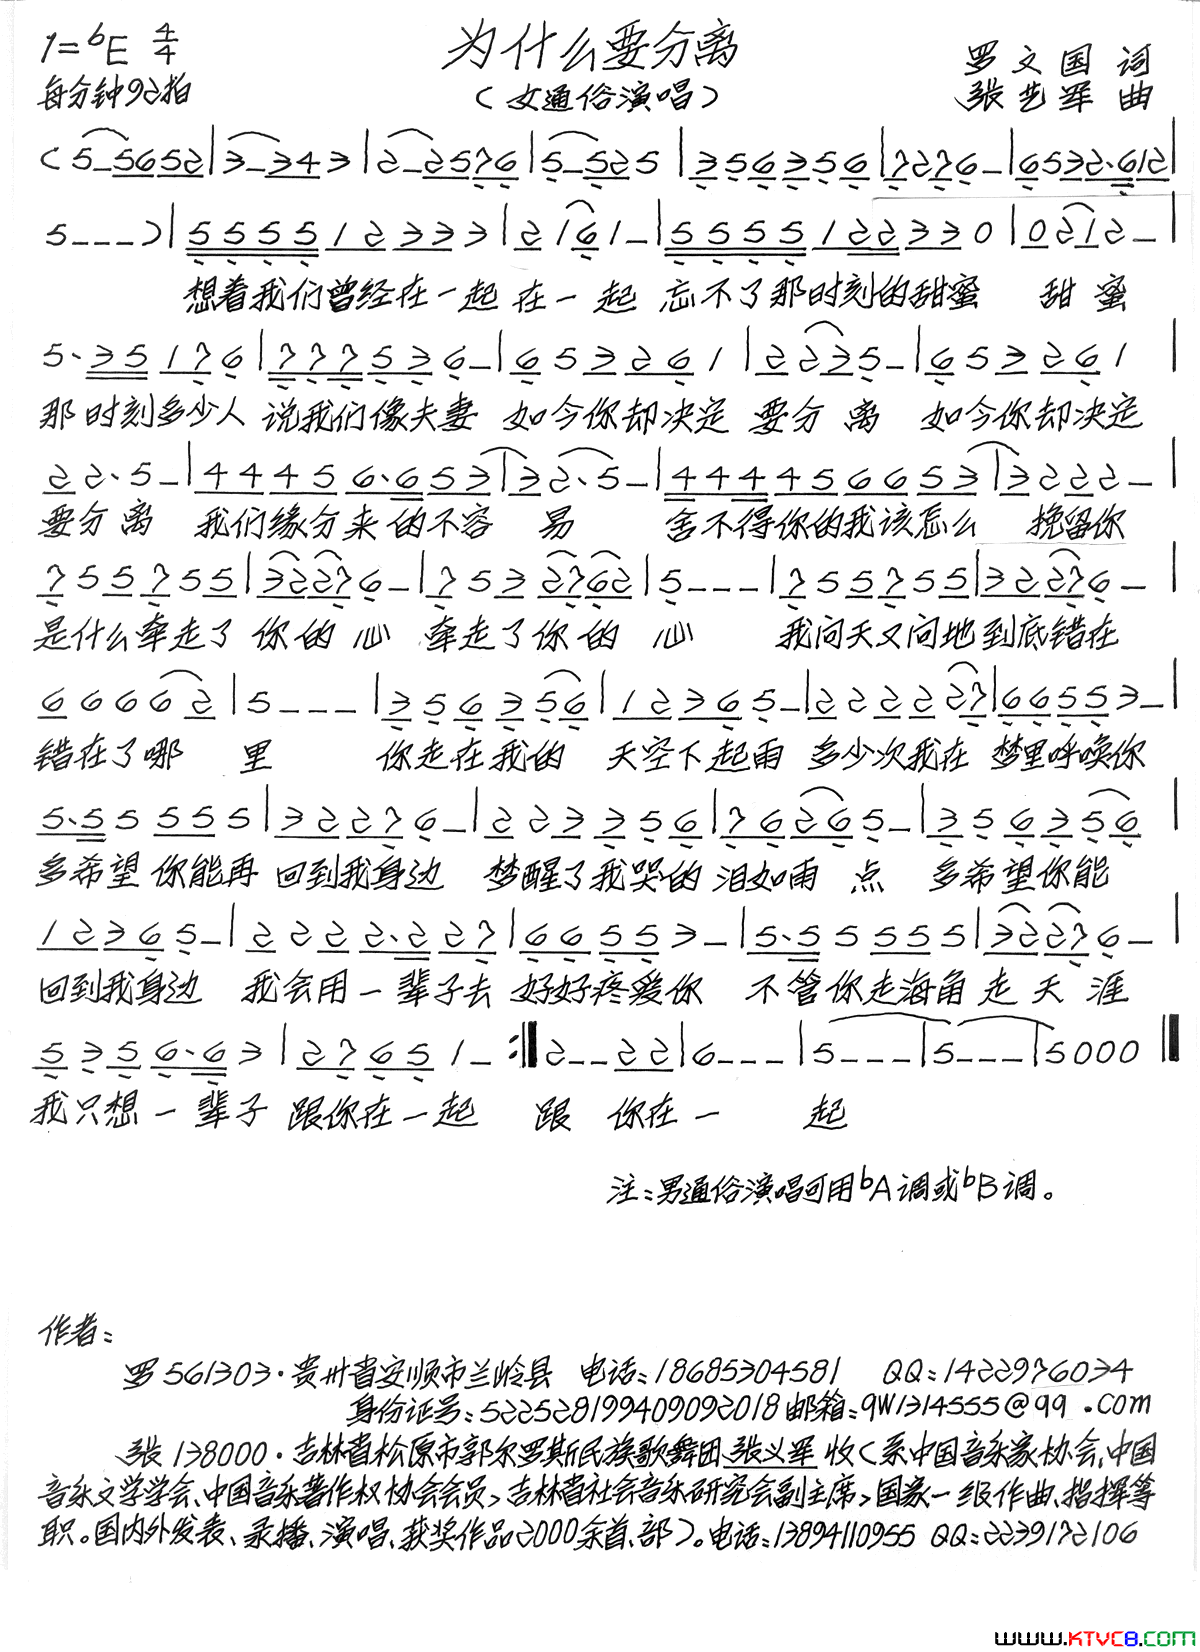 1=ᵇE 4/4
为什么要分离
罗文国 词
每分钟92拍
(女通俗演唱)
张艺军 曲
(5_5652|3_343|2_2576|5_525|356356|7276_|6532·612|
5___)|5555 12333|2161_|5555 122330|0212_|
想着我们曾经在一起在一起 忘不了那时刻的甜蜜 甜蜜
5·35176|777536_|653261|2235_|653261|
那时刻多少人 说我们像夫妻 如今你却决定 要分离 如今你却决定
22·5_|44456·653|32·5_|444566653|3222_|
要分离 我们缘分来的不容易 舍不得你的我该怎么 挽留你
755755|32276_|7532762|5___|755755|32276_|
是什么牵走了你的心 牵走了你的心 我问天又问地到底错在
66662|5___|356356|12365_|2222227|66553_|
错在了哪里 你走在我的 天空下起雨 多少次我在 梦里呼唤你
5·55555|32276_|223356|76265_|356356|
多希望你能再 回到我身边 梦醒了我哭的 泪如雨点 多希望你能
12365_|2222·227|66553_|5·55555|32276_|
回到我身边 我会用一辈子去 好好疼爱你 不管你走海角 走天涯
5356·63|27651_:‖2__22|6___|5___|5___|5000‖
我只想一辈子 跟你在一起 跟 你在一 起
注:男通俗演唱可用ᵇA调或ᵇB调。
作者:
罗561303·贵州省安顺市兰岭县 电话:18685304581 QQ:1422976034
身份证号:522528199409092018邮箱:qw1314555@qq.com
张138000·吉林省松原市郭尔罗斯民族歌舞团张义军 收(系中国音乐家协会,中国
音乐文学学会、中国音乐著作权协会会员,吉林省社会音乐研究会副主席,国家一级作曲、指挥等
职。国内外发表、录播、演唱、获奖作品2000余首、部)。电话:13894110955 QQ:2239172106
www.KTVC8.com